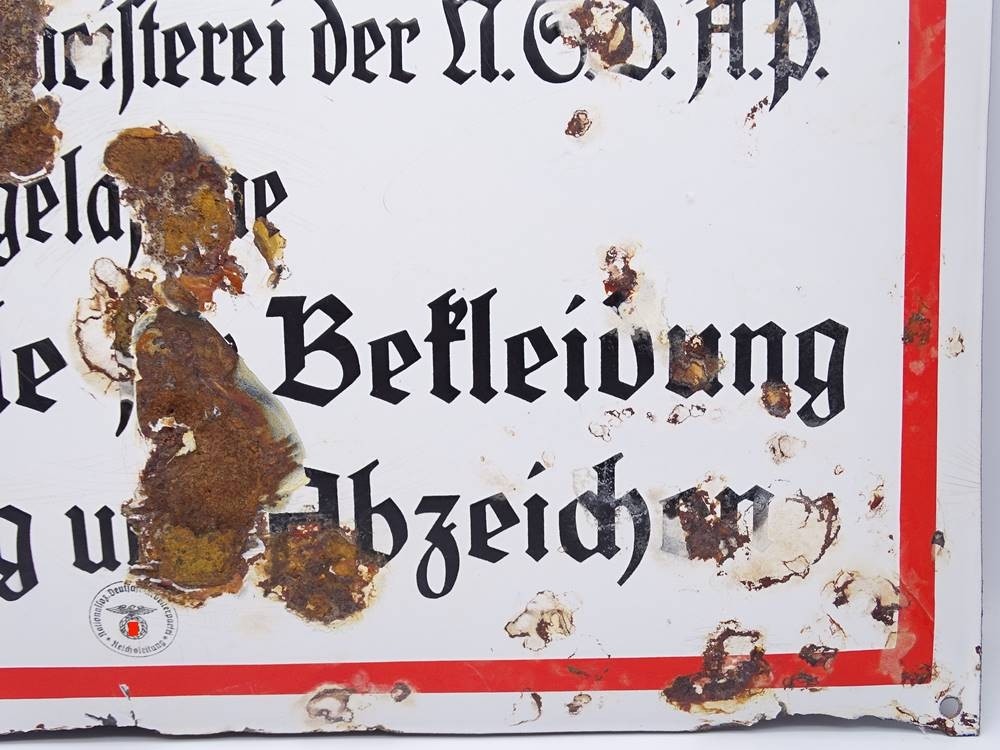 meisterei der N.S.D.A.P.
gelassene
le für Bekleidung
g und Abzeichen
Nationalsoz. Deutsche Arbeiterpartei
Reichsleitung